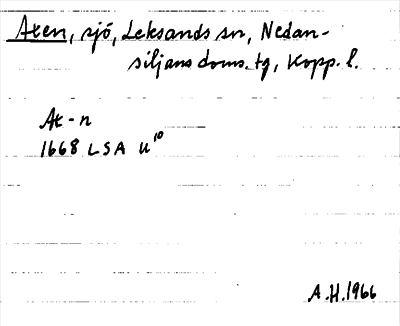 Axen, sjö, Leksands sn, Nedan-
siljans doms. tg, Kopp. l.
Ax-n
1668 LSA U¹⁰
A.H.1966